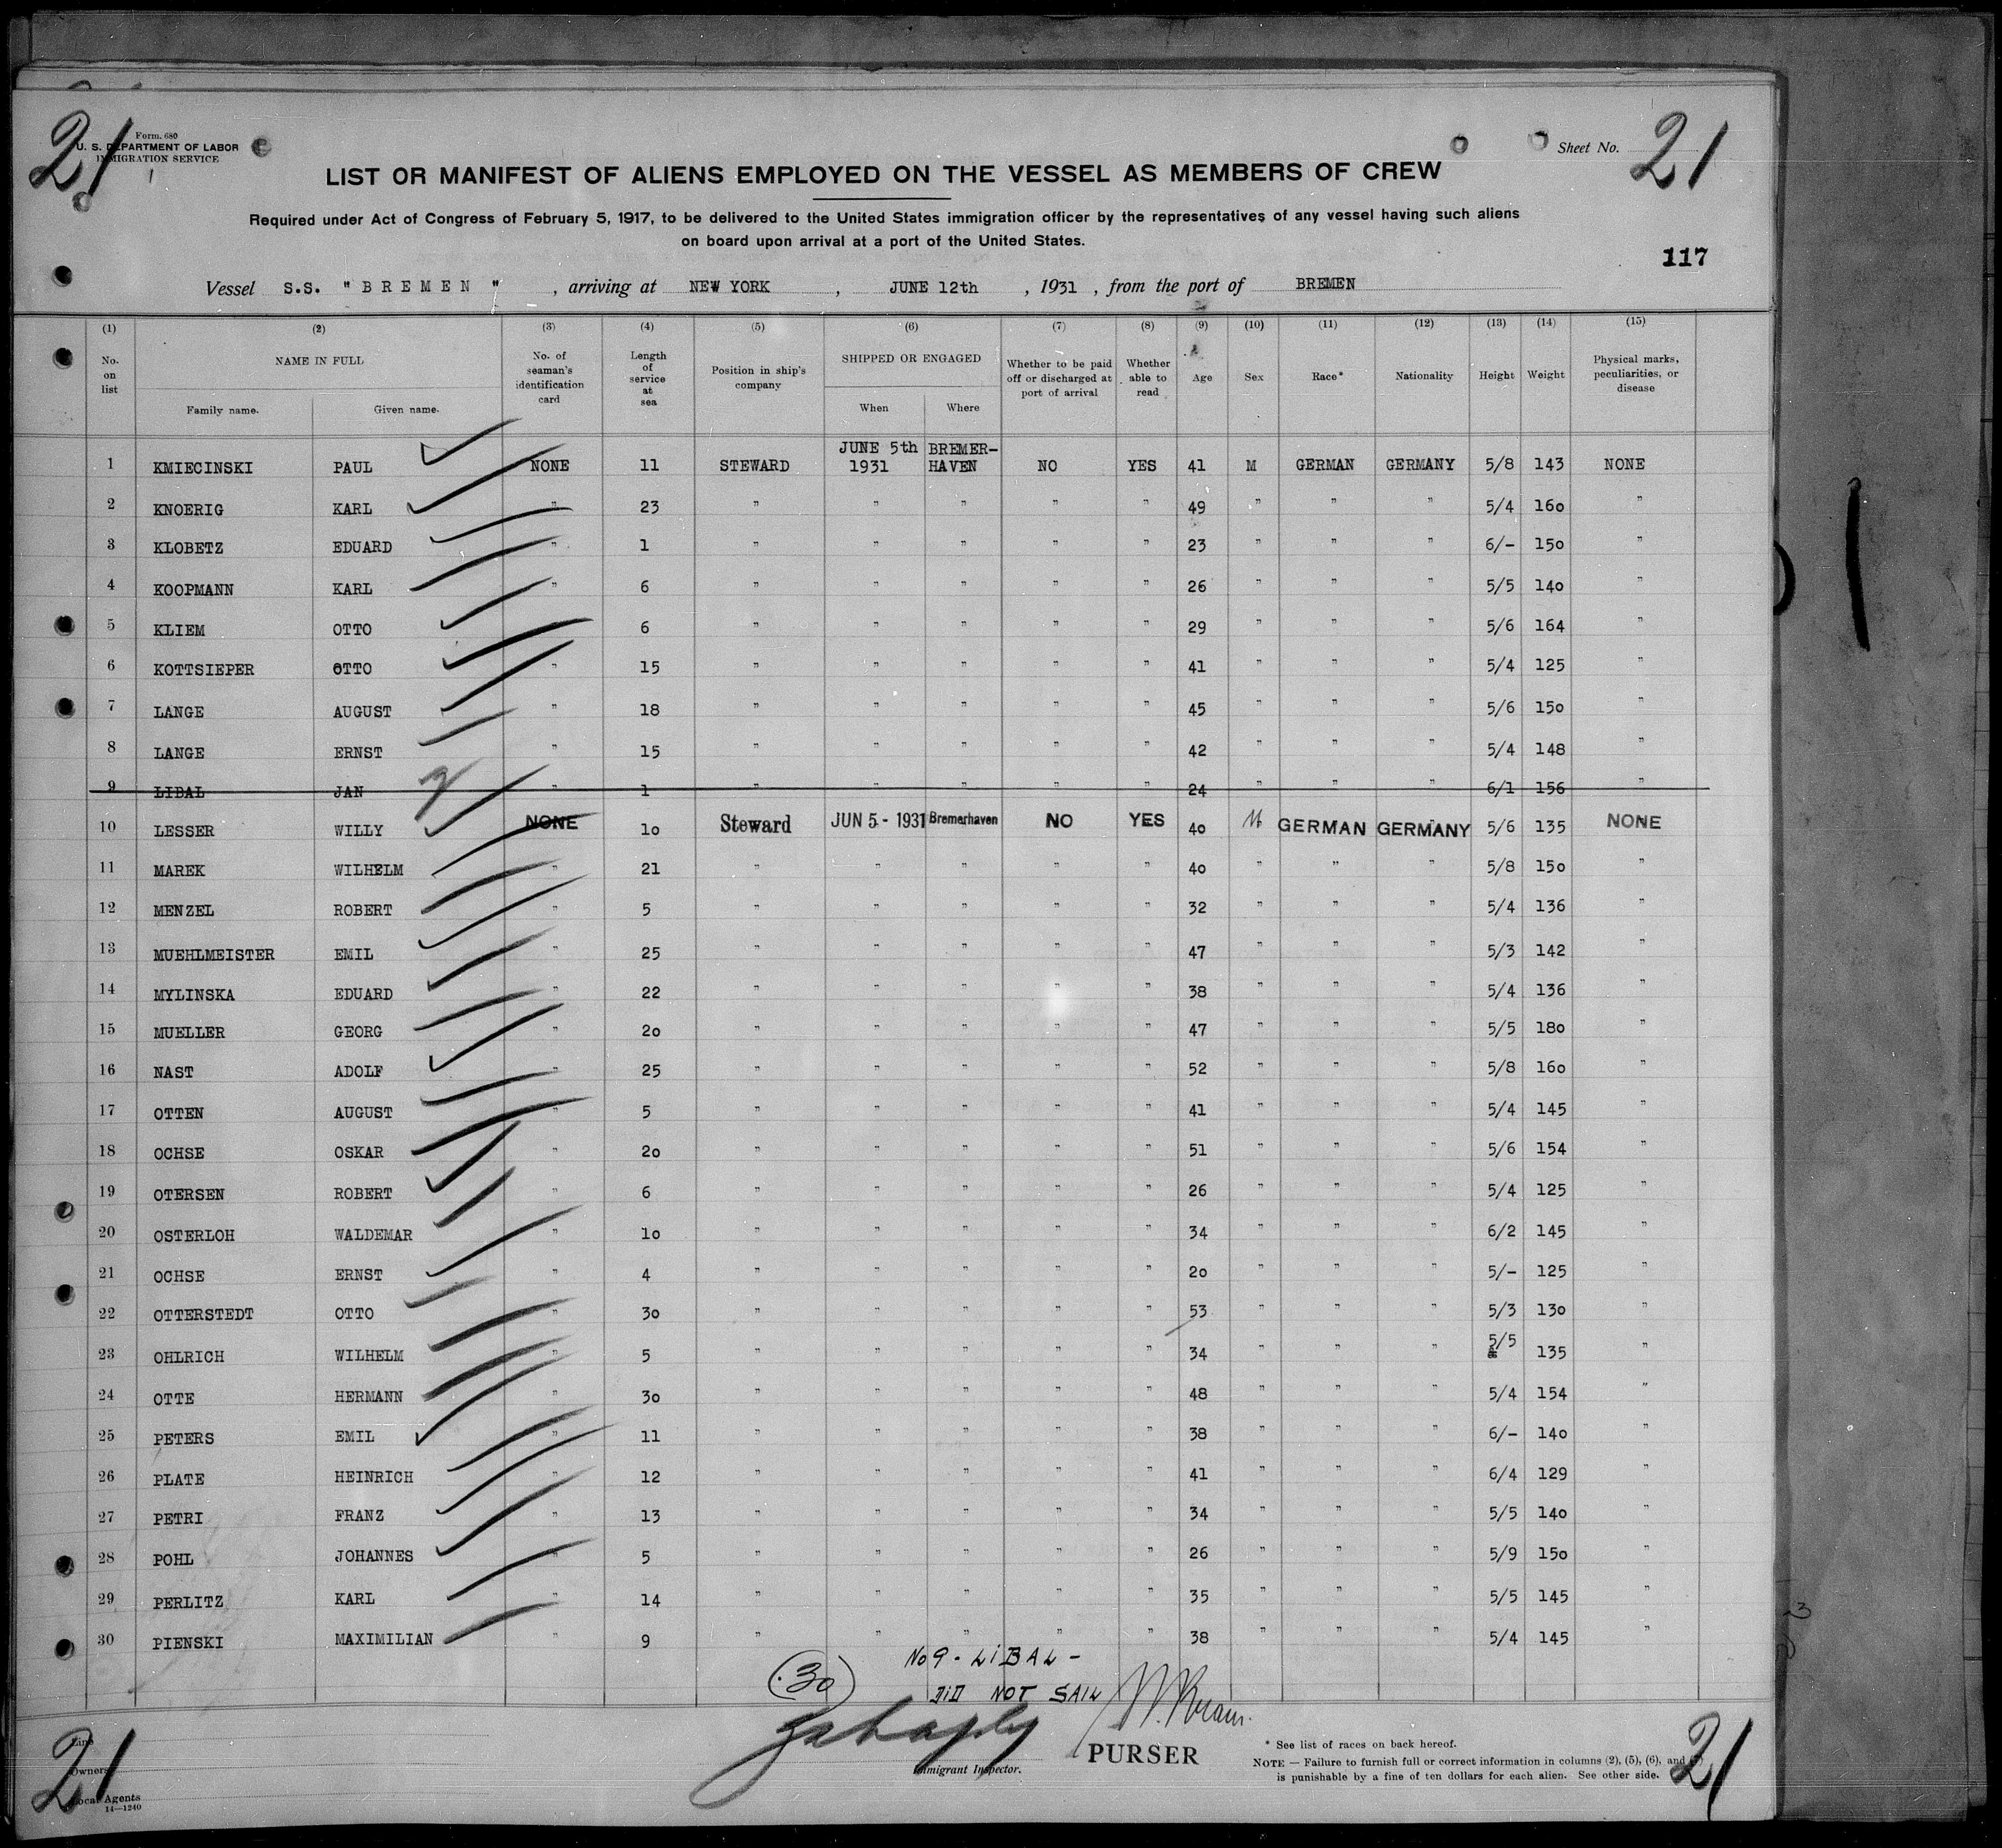 21
Form. 680
U. S. DEPARTMENT OF LABOR
IMMIGRATION SERVICE
Sheet No. 21
LIST OR MANIFEST OF ALIENS EMPLOYED ON THE VESSEL AS MEMBERS OF CREW
Required under Act of Congress of February 5, 1917, to be delivered to the United States immigration officer by the representatives of any vessel having such aliens
on board upon arrival at a port of the United States.
117
Vessel S.S. "BREMEN", arriving at NEW YORK, JUNE 12th, 1931, from the port of BREMEN
(1) (2) (3) (4) (5) (6) (7) (8) (9) (10) (11) (12) (13) (14) (15)
No. on list NAME IN FULL Family name. Given name. No. of seaman's identification card Length of service at sea Position in ship's company SHIPPED OR ENGAGED When Where Whether to be paid off or discharged at port of arrival Whether able to read Age Sex Race* Nationality Height Weight Physical marks, peculiarities, or disease
1 KMIECINSKI PAUL NONE 11 STEWARD JUNE 5th 1931 BREMER-HAVEN NO YES 41 M GERMAN GERMANY 5/8 143 NONE
2 KNOERIG KARL " 23 " " " " " 49 " " " 5/4 160 "
3 KLOBETZ EDUARD " 1 " " " " " 23 " " " 6/- 150 "
4 KOOPMANN KARL " 6 " " " " " 26 " " " 5/5 140 "
5 KLIEM OTTO " 6 " " " " " 29 " " " 5/6 164 "
6 KOTTSIEPER OTTO " 15 " " " " " 41 " " " 5/4 125 "
7 LANGE AUGUST " 18 " " " " " 45 " " " 5/6 150 "
8 LANGE ERNST " 15 " " " " " 42 " " " 5/4 148 "
9 LIBAL JAN 1 " " " " " 24 " " " 6/1 156 "
10 LESSER WILLY NONE 10 Steward JUN 5 - 1931 Bremerhaven NO YES 40 M GERMAN GERMANY 5/6 135 NONE
11 MAREK WILHELM " 21 " " " " " 40 " " " 5/8 150 "
12 MENZEL ROBERT " 5 " " " " " 32 " " " 5/4 136 "
13 MUEHLMEISTER EMIL " 25 " " " " " 47 " " " 5/3 142 "
14 MYLINSKA EDUARD " 22 " " " " " 38 " " " 5/4 136 "
15 MUELLER GEORG " 20 " " " " " 47 " " " 5/5 180 "
16 NAST ADOLF " 25 " " " " " 52 " " " 5/8 160 "
17 OTTEN AUGUST " 5 " " " " " 41 " " " 5/4 145 "
18 OCHSE OSKAR " 20 " " " " " 51 " " " 5/6 154 "
19 OTERSEN ROBERT " 6 " " " " " 26 " " " 5/4 125 "
20 OSTERLOH WALDEMAR " 10 " " " " " 34 " " " 6/2 145 "
21 OCHSE ERNST " 4 " " " " " 20 " " " 5/- 125 "
22 OTTERSTEDT OTTO " 30 " " " " " 53 " " " 5/3 130 "
23 OHLRICH WILHELM " 5 " " " " " 34 " " " 5/5 135 "
24 OTTE HERMANN " 30 " " " " " 48 " " " 5/4 154 "
25 PETERS EMIL " 11 " " " " " 38 " " " 6/- 140 "
26 PLATE HEINRICH " 12 " " " " " 41 " " " 6/4 129 "
27 PETRI FRANZ " 13 " " " " " 34 " " " 5/5 140 "
28 POHL JOHANNES " 5 " " " " " 26 " " " 5/9 150 "
29 PERLITZ KARL " 14 " " " " " 35 " " " 5/5 145 "
30 PIENSKI MAXIMILIAN " 9 " " " " " 38 " " " 5/4 145 "
30
No 9 - LIBAL -
DID NOT SAIL
PURSER
Immigrant Inspector.
* See list of races on back hereof.
NOTE — Failure to furnish full or correct information in columns (2), (5), (6), and
is punishable by a fine of ten dollars for each alien. See other side.
21
Line
Owners
Local Agents
14—1240
21